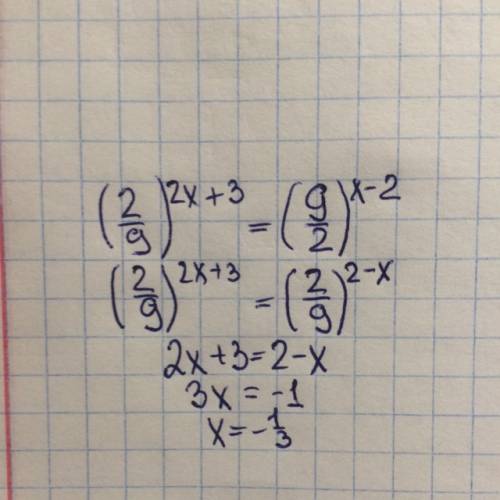 (2/9)^(2x+3) = (9/2)^(x-2)
(2/9)^(2x+3) = (2/9)^(2-x)
2x+3=2-x
3x=-1
x=-1/3